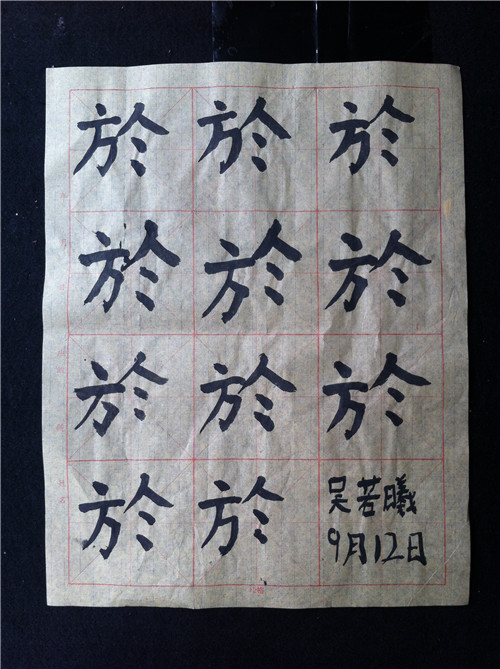 於於於
於於於
於於於
於於
吴若曦
9月12日